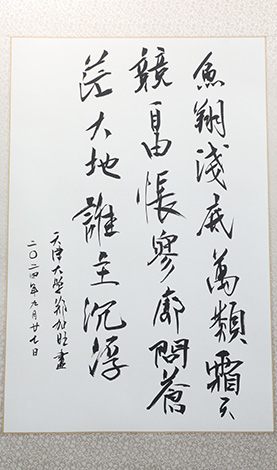 魚翔淺底萬類霜天
競自由悵寥廓問蒼
茫大地誰主沉浮
天津大學
二〇二四年九月廿七日